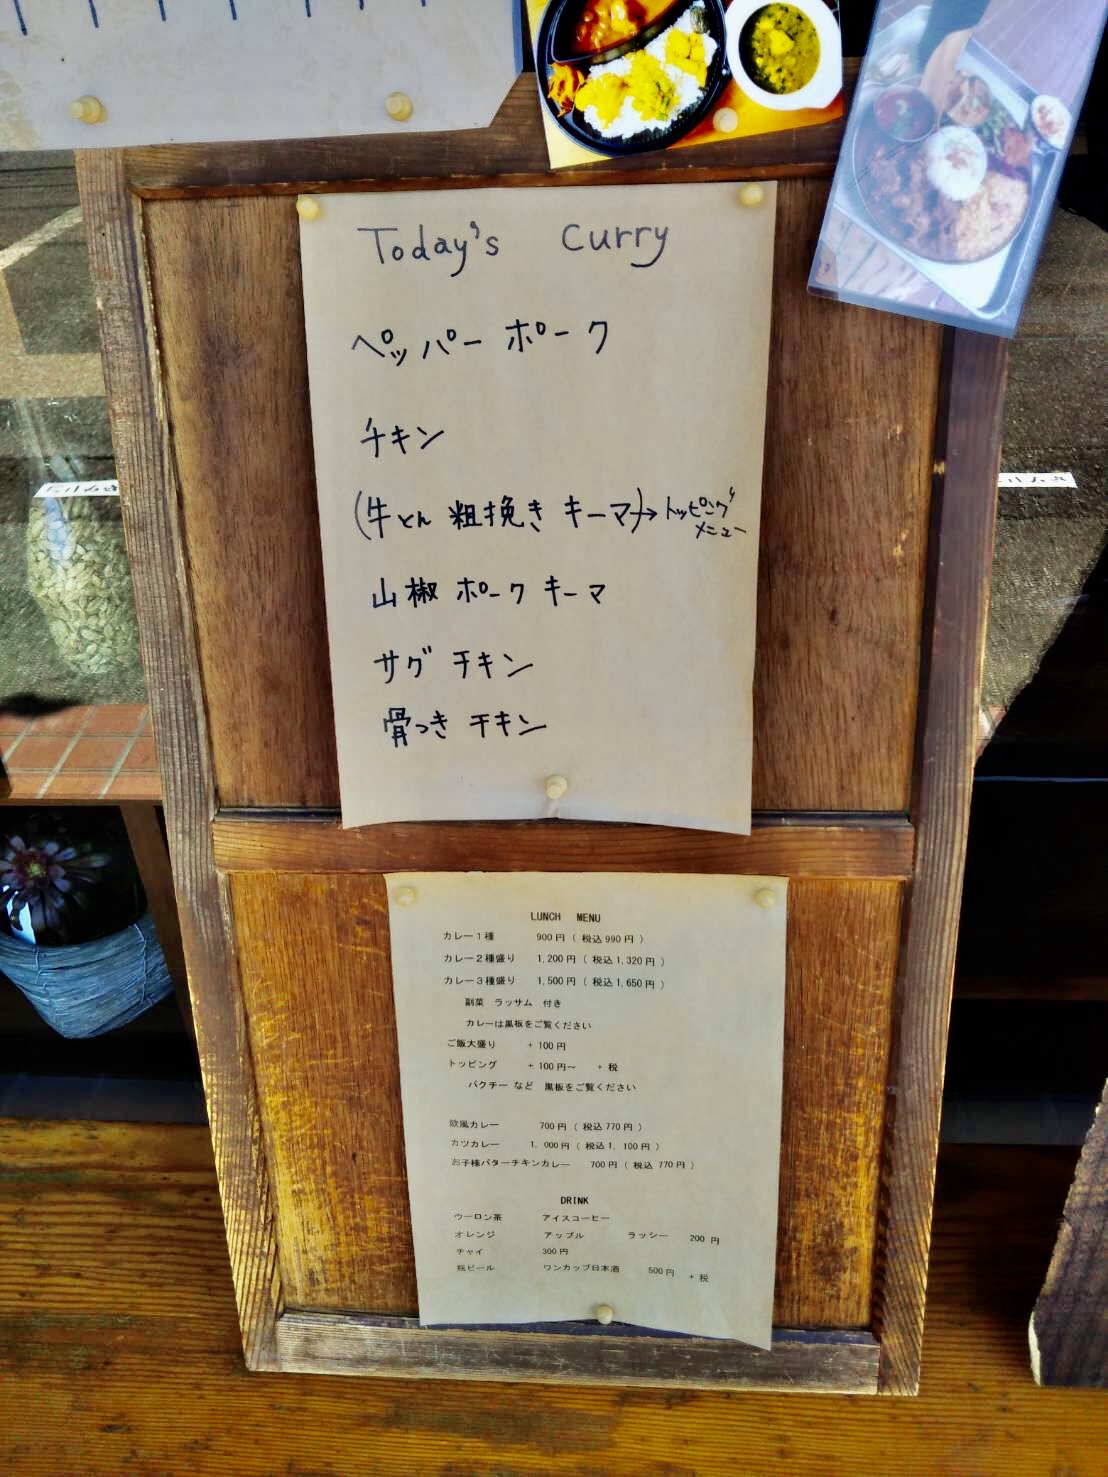 Today's Curry
ペッパーポーク
チキン
(牛とん 粗挽き キーマ)→トッピング
メニュー
山椒 ポーク キーマ
サグ チキン
骨つき チキン
LUNCH MENU
カレー1種 900円 ( 税込990円 )
カレー2種盛り 1,200円 ( 税込1,320円 )
カレー3種盛り 1,500円 ( 税込1,650円 )
副菜 ラッサム 付き
カレーは黒板をご覧ください
ご飯大盛り +100円
トッピング +100円～ +税
パクチー など 黒板をご覧ください
欧風カレー 700円 ( 税込770円 )
カツカレー 1,000円 ( 税込1,100円 )
お子様バターチキンカレー 700円 ( 税込 770円 )
DRINK
ウーロン茶 アイスコーヒー
オレンジ アップル ラッシー 200円
チャイ 300円
瓶ビール ワンカップ日本酒 500円 +税